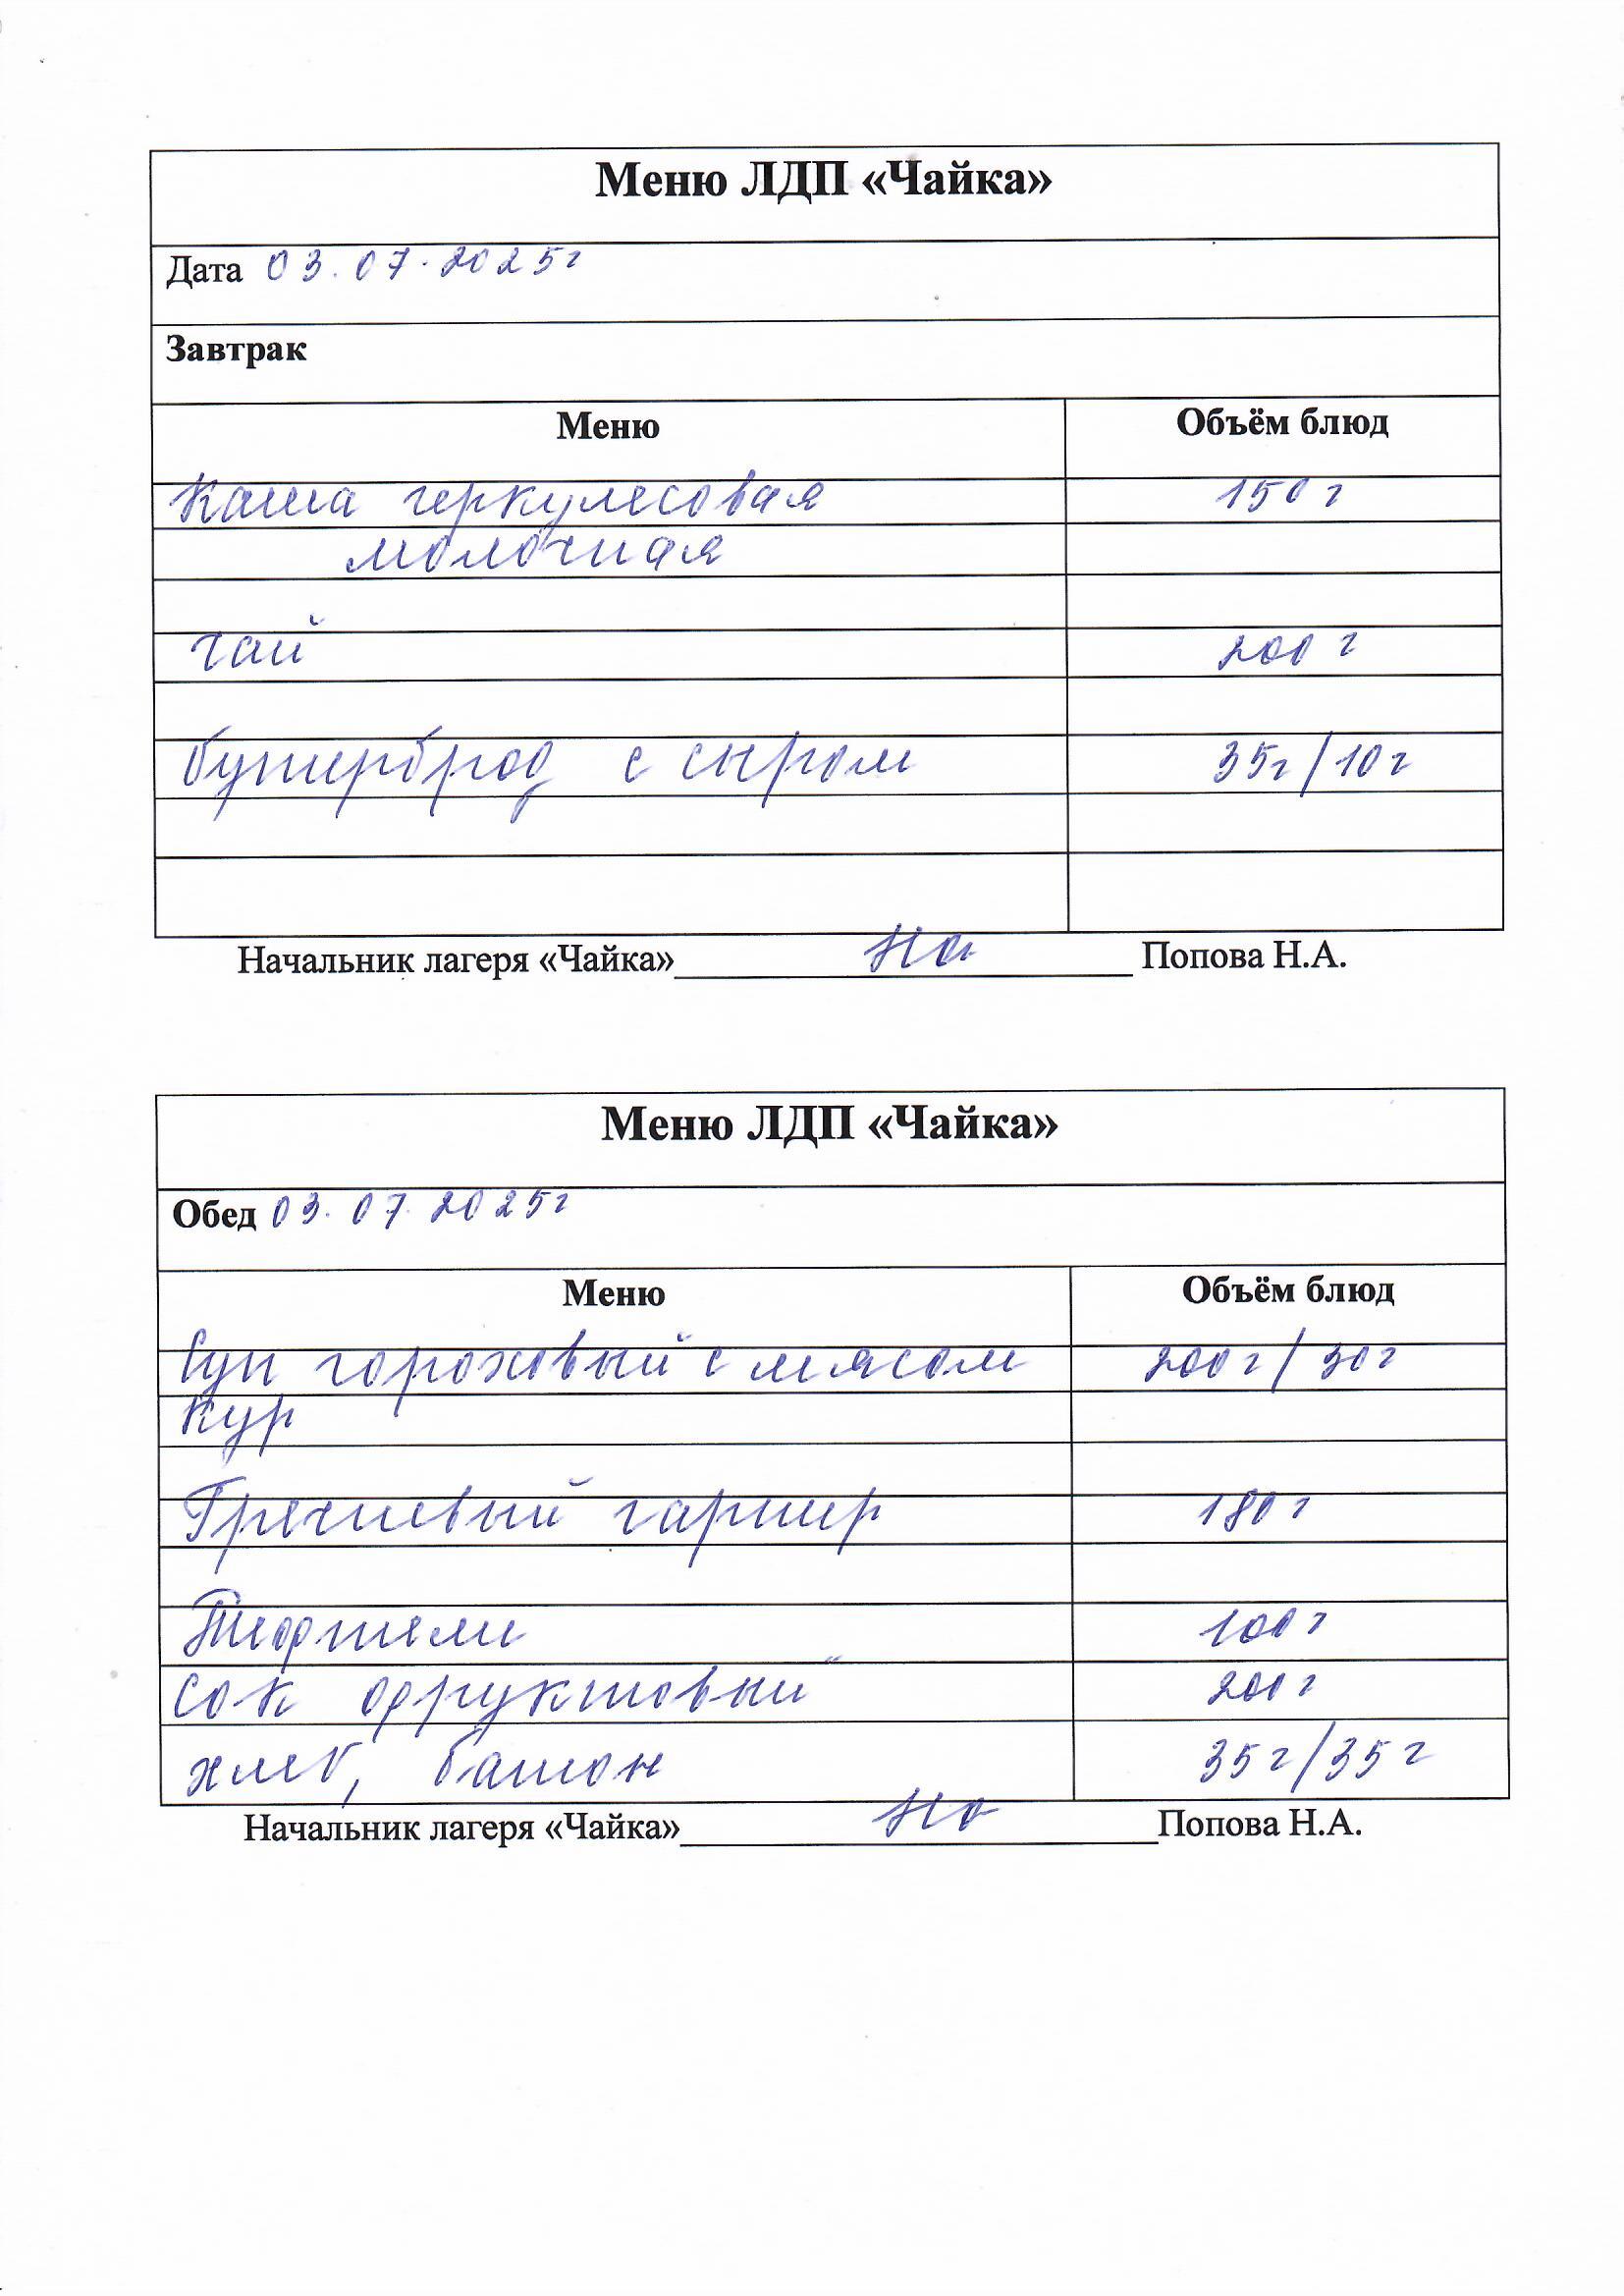 Меню ЛДП «Чайка»
Дата 03.07.2025г
Завтрак
Меню Объём блюд
Каша геркулесовая 150 г
молочная
чай 200 г
бутерброд с сыром 35г/10г
Начальник лагеря «Чайка» Попова Н.А.
Меню ЛДП «Чайка»
Обед 03.07.2025г
Меню Объём блюд
Суп гороховый с мясом 200г/30г
кур
Гречневый гарнир 180г
Тефтели 100г
сок фруктовый 200г
хлеб, батон 35г/35г
Начальник лагеря «Чайка» Попова Н.А.